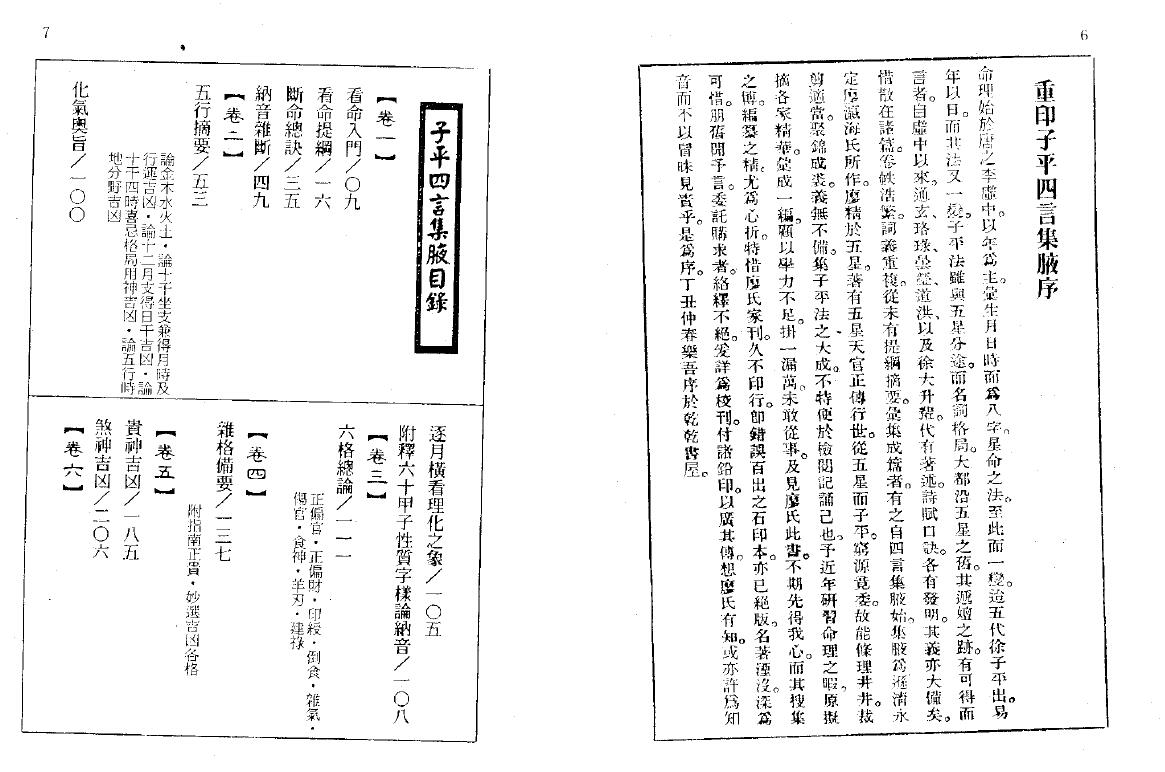 6
重印子平四言集腋序
命理始於唐之李虛中。以年爲主。彙生月日時而爲八字。星命之法。至此而一變。迨五代徐子平出。易
年以日。而其法又一變。子平法雖與五星分途。而名詞格局。大都沿五星之舊。其遞嬗之跡。有可得而
言者。自虛中以來。通玄、珞琭、曇瑩、道洪、以及徐大升輩。代有著述。詩賦口訣。各有發明。其義亦大備矣。
惜散在諸篇。卷帙浩繁。詞義重複。從未有提綱摘要。彙集成篇者。有之自四言集腋始。集腋爲遜清永
定廖瀛海氏所作。廖精於五星。著有五星天官正傳行世。從五星而子平。窮源竟委。故能條理井井。裁
剪適當。聚錦成裘。義無不備。集子平法之大成。不特便於檢閱記誦已也。予近年研習命理之暇。原擬
摘各家精華。彙成一編。顧以學力不足。掛一漏萬。未敢從事。及見廖氏此書。不期先得我心。而其搜集
之博。編纂之精。尤爲心折。特惜廖氏家刊。久不印行。卽錯誤百出之石印本。亦已絕版。名著湮沒。深爲
可惜。朋舊聞予言。委託購求者。絡繹不絕。爰詳爲校刊。付諸鉛印。以廣其傳。想廖氏有知。或亦許爲知
音而不以冒昧見責乎。是爲序。丁丑仲春樂吾序於乾乾書屋。
7
子平四言集腋目錄
【卷一】
看命入門／〇九
看命提綱／一六
斷命總訣／三五
納音雜斷／四九
【卷二】
五行摘要／五三
論金木水火土・論十干坐支兼得月時及
行運吉凶・論十二月支得日干吉凶・論
十干四時喜忌格局用神吉凶・論五行時
地分野吉凶
化氣奧旨／一〇〇
逐月橫看理化之象／一〇五
附釋六十甲子性質字樣論納音／一〇八
【卷三】
六格總論／一一一
正偏官・正偏財・印綬・倒食・雜氣・
傷官・食神・羊刃・建祿
【卷四】
雜格備要／一三七
附指南正貫・妙選吉凶各格
【卷五】
貴神吉凶／一八五
煞神吉凶／二〇六
【卷六】